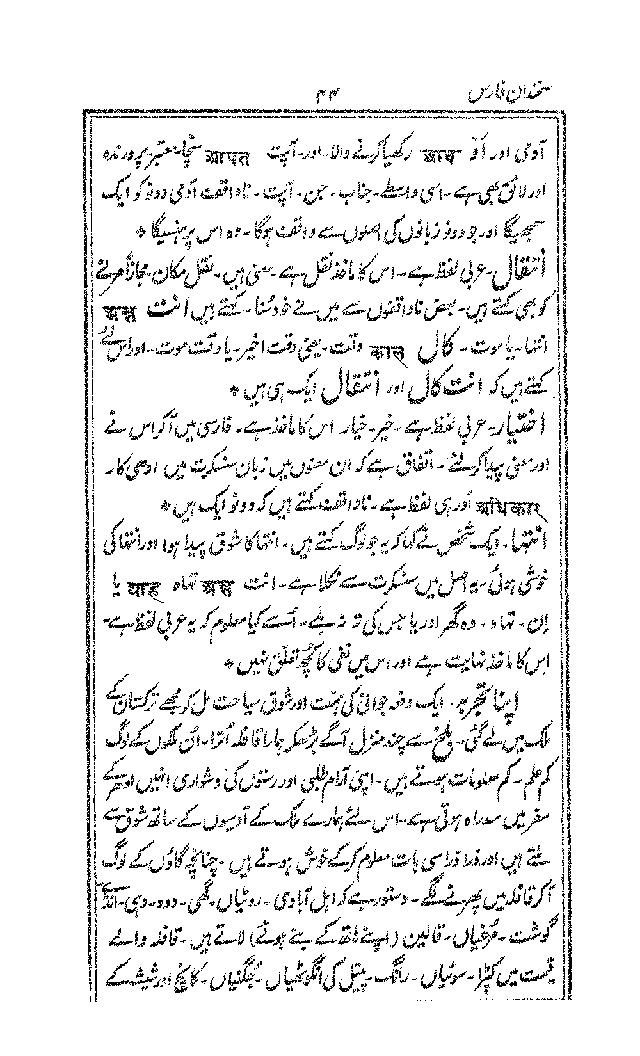 سخندان فارس ۴۴
آدمی اور آو आव رکھیا کرنے والا۔ اور۔ آپت आपत سچا۔ معتبر۔ پروردہ
اور لائق بھی ہے۔ اسی واسطے۔ جناب۔ جن۔ آپت۔ ناواقف آدمی دونو کو ایک
سمجھیگا اور جو دونو زبانوں کی اصلوں سے واقف ہوگا۔ وہ اس پر ہنسیگا *
انتقال۔ عربی لفظ ہے۔ اس کا ماخذ نقل ہے۔ معنی ہیں۔ نقل مکان۔ مجازاً مرنے
کو بھی کہتے ہیں۔ بعض ناواقفوں سے میں نے خود سُنا۔ کہتے ہیں انت अन्त
انتہا۔ یا موت۔ کال काल وقت۔ یعنی وقت اخیر۔ یا وقت موت۔ اور اس لئے
کہتے ہیں کہ انت کال اور انتقال ایک ہی ہیں *
اختیار۔ عربی لفظ ہے۔ خیر۔ خیار اس کا ماخذ ہے۔ فارسی میں آکر اس نے
اور معنی پیدا کر لئے۔ اتفاق ہے کہ ان معنوں میں زبان سنسکرت میں ادھی کار۔
अधिकार اَور ہی لفظ ہے۔ ناواقف کہتے ہیں کہ دونو ایک ہیں *
انتہا۔ ایک شخص نے کہا کہ یہ جو لوگ کہتے ہیں۔ انتہا کا شوق پیدا ہوا اور انتہا کی
خوشی ہوئی۔ یہ اصل میں سنسکرت سے نکلا ہے۔ انت अन्त تھاہ थाह یا
اِن۔ تھاہ۔ وہ گھر اور یا جس کی تہ نہ ملے۔ اُسے کیا معلوم کہ یہ عربی لفظ ہے۔
اس کا ماخذ نہایت ہے اور اس میں نفی کا کچھ تعلق نہیں *
اپنا تجربہ۔ ایک دفعہ جوانی کی ہمت اور شوق سیاحت مل کر مجھے ترکستان کے
ملک میں لے گئی۔ بلخ سے چند منزل آگے بڑھ کر ہمارا قافلہ اُترا۔ اُن ملکوں کے لوگ
کم علم۔ کم معلومات ہوتے ہیں۔ اپنی آرام طلبی اور رستوں کی دشواری انہیں ادھر کے
سفر میں سدراہ ہوتی ہے۔ اس لئے ہمارے ملک کے آدمیوں کے ساتھ شوق سے
ملتے ہیں اور ذرا ذرا سی بات معلوم کر کے خوش ہوتے ہیں۔ چنانچہ گاؤں کے لوگ
آکر قافلہ میں پھرنے لگے۔ دستور ہے کہ اہل آبادی۔ روٹیاں۔ گھی۔ دودھ۔ دہی۔ انڈے
گوشت۔ مُرغیاں۔ قالین (اپنے ہاتھ کے بنے ہوئے) لاتے ہیں۔ قافلہ والے
قیمت میں کپڑا۔ سوئیاں۔ رانگ۔ پیتل کی انگوٹھیاں کانچ اور شیشے کے